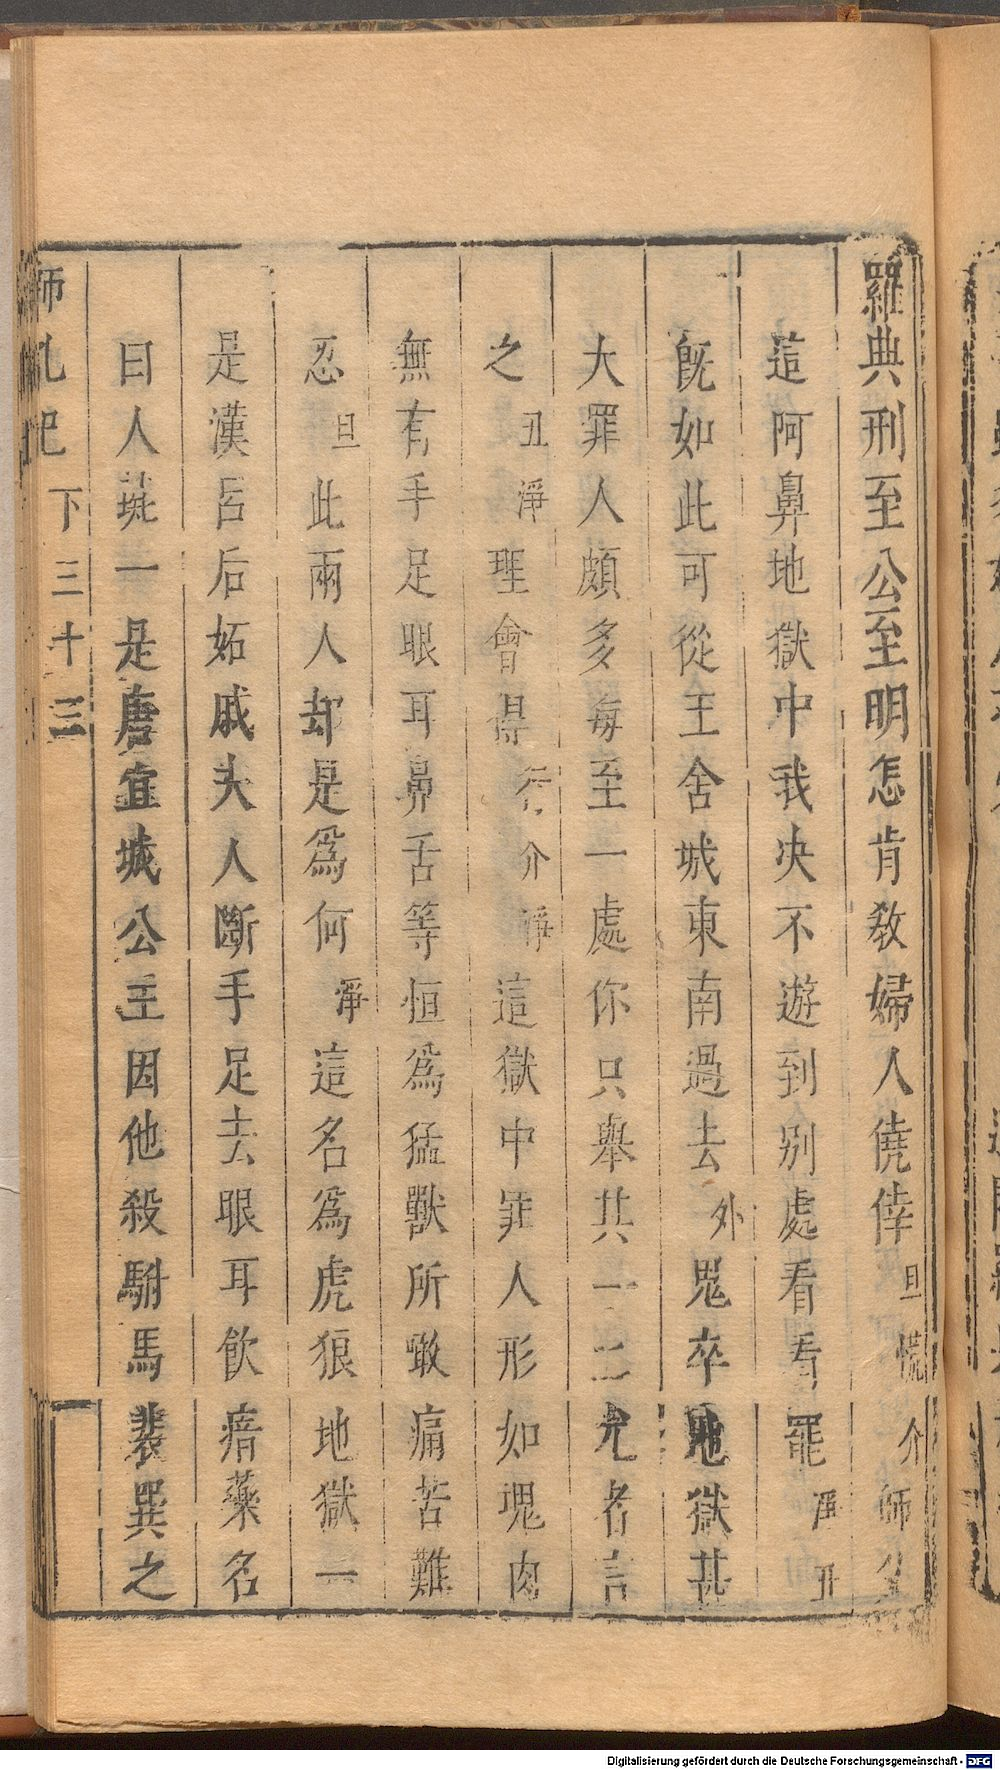 羅典刑至公至明怎肯教婦人僥倖旦慌介師父
這阿鼻地獄中我决不遊到别處看看罷淨丑
旣如此可從王舍城東南過去外鬼卒地獄甚
大罪人頗多每至一處你只舉其一二尤者言
之丑淨理會得行介淨這獄中罪人形如塊肉
無有手足眼耳鼻舌等恒爲猛獸所噉痛苦難
忍旦此兩人却是爲何淨這名爲虎狼地獄一
是漢呂后妬戚夫人斷手足去眼耳飲瘖藥名
曰人彘一是唐宜城公主因他殺駙馬裴巽之
下三十三
Digitalisierung gefördert durch die Deutsche Forschungsgemeinschaft - DFG